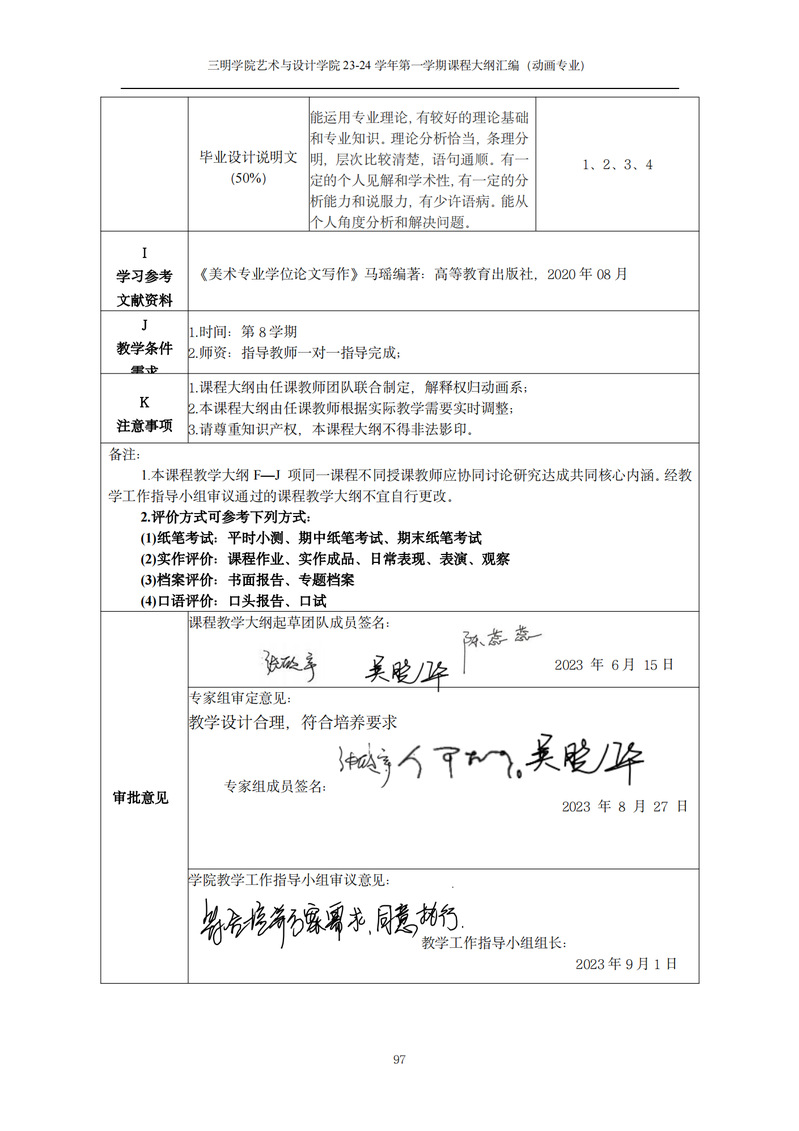 三明学院艺术与设计学院 23-24 学年第一学期课程大纲汇编（动画专业）
毕业设计说明文
(50%)
能运用专业理论,有较好的理论基础
和专业知识。理论分析恰当，条理分
明，层次比较清楚，语句通顺。有一
定的个人见解和学术性,有一定的分
析能力和说服力，有少许语病。能从
个人角度分析和解决问题。
1、2、3、4
I
学习参考
文献资料
《美术专业学位论文写作》马瑶编著：高等教育出版社，2020 年 08 月
J
教学条件
需求
1.时间：第 8 学期
2.师资：指导教师一对一指导完成；
K
注意事项
1.课程大纲由任课教师团队联合制定，解释权归动画系；
2.本课程大纲由任课教师根据实际教学需要实时调整；
3.请尊重知识产权，本课程大纲不得非法影印。
备注：
1.本课程教学大纲 F—J 项同一课程不同授课教师应协同讨论研究达成共同核心内涵。经教
学工作指导小组审议通过的课程教学大纲不宜自行更改。
2.评价方式可参考下列方式：
(1)纸笔考试：平时小测、期中纸笔考试、期末纸笔考试
(2)实作评价：课程作业、实作成品、日常表现、表演、观察
(3)档案评价：书面报告、专题档案
(4)口语评价：口头报告、口试
审批意见
课程教学大纲起草团队成员签名：
陈蕊蕊
吴晓华
2023 年 6 月 15 日
专家组审定意见：
教学设计合理，符合培养要求
吴晓华
专家组成员签名：
2023 年 8 月 27 日
学院教学工作指导小组审议意见：
符合培养方案需求,同意执行.
教学工作指导小组组长：
2023 年 9 月 1 日
97